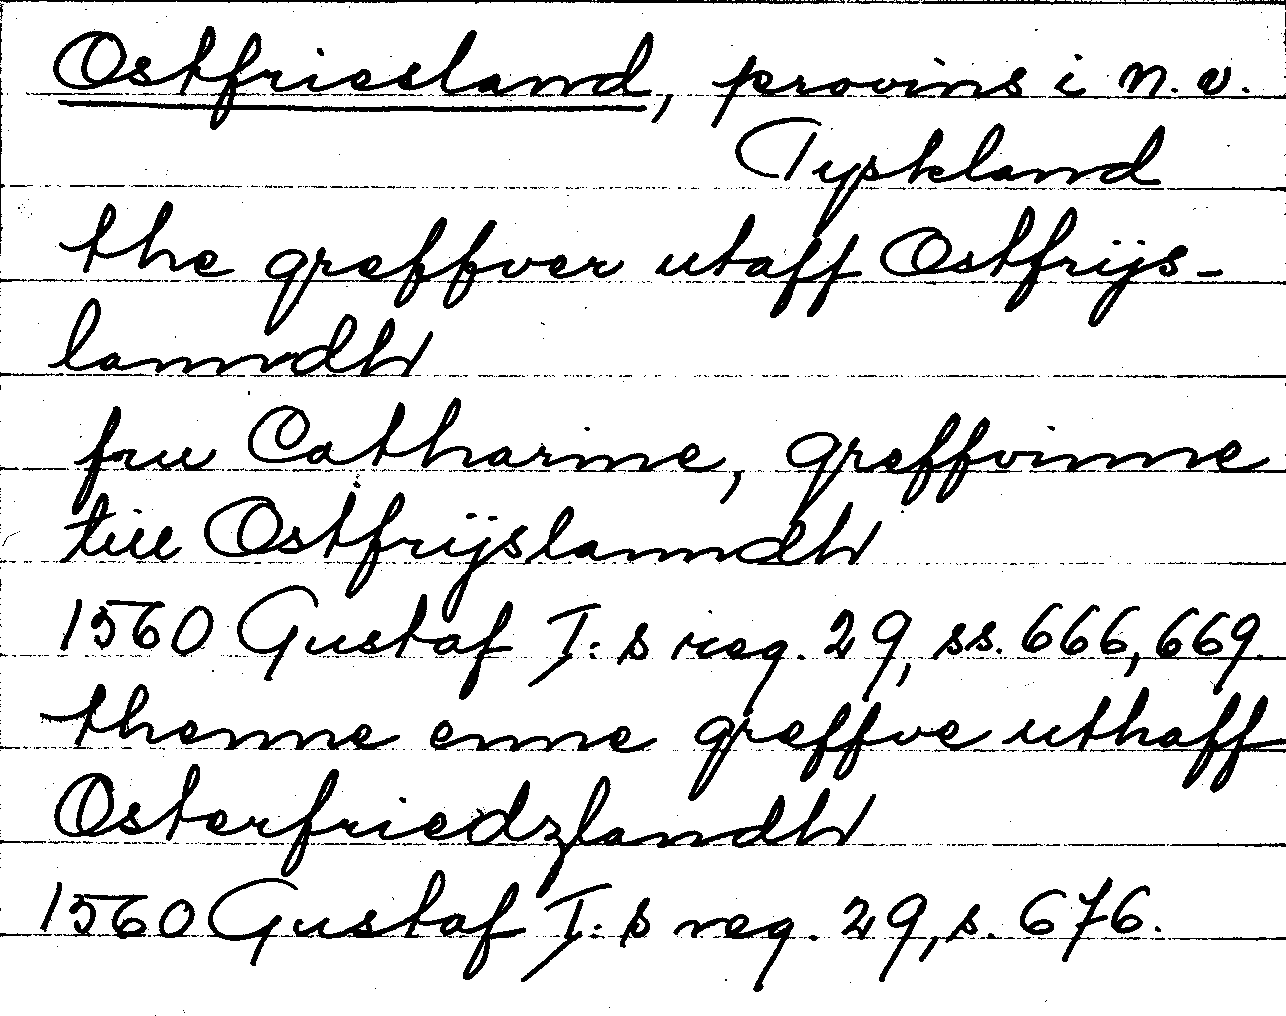 Ostfriesland, provins i n.v.
Tyskland
the greffver utaff Ostfrijs-
lanndh
fru Catharine, greffvinne
till Ostfrijslanndh
1560 Gustaf I:s reg. 29, ss. 666, 669.
thenne enne greffve uthaff
Osterfriedzlandh
1560 Gustaf I:s reg. 29, s. 676.